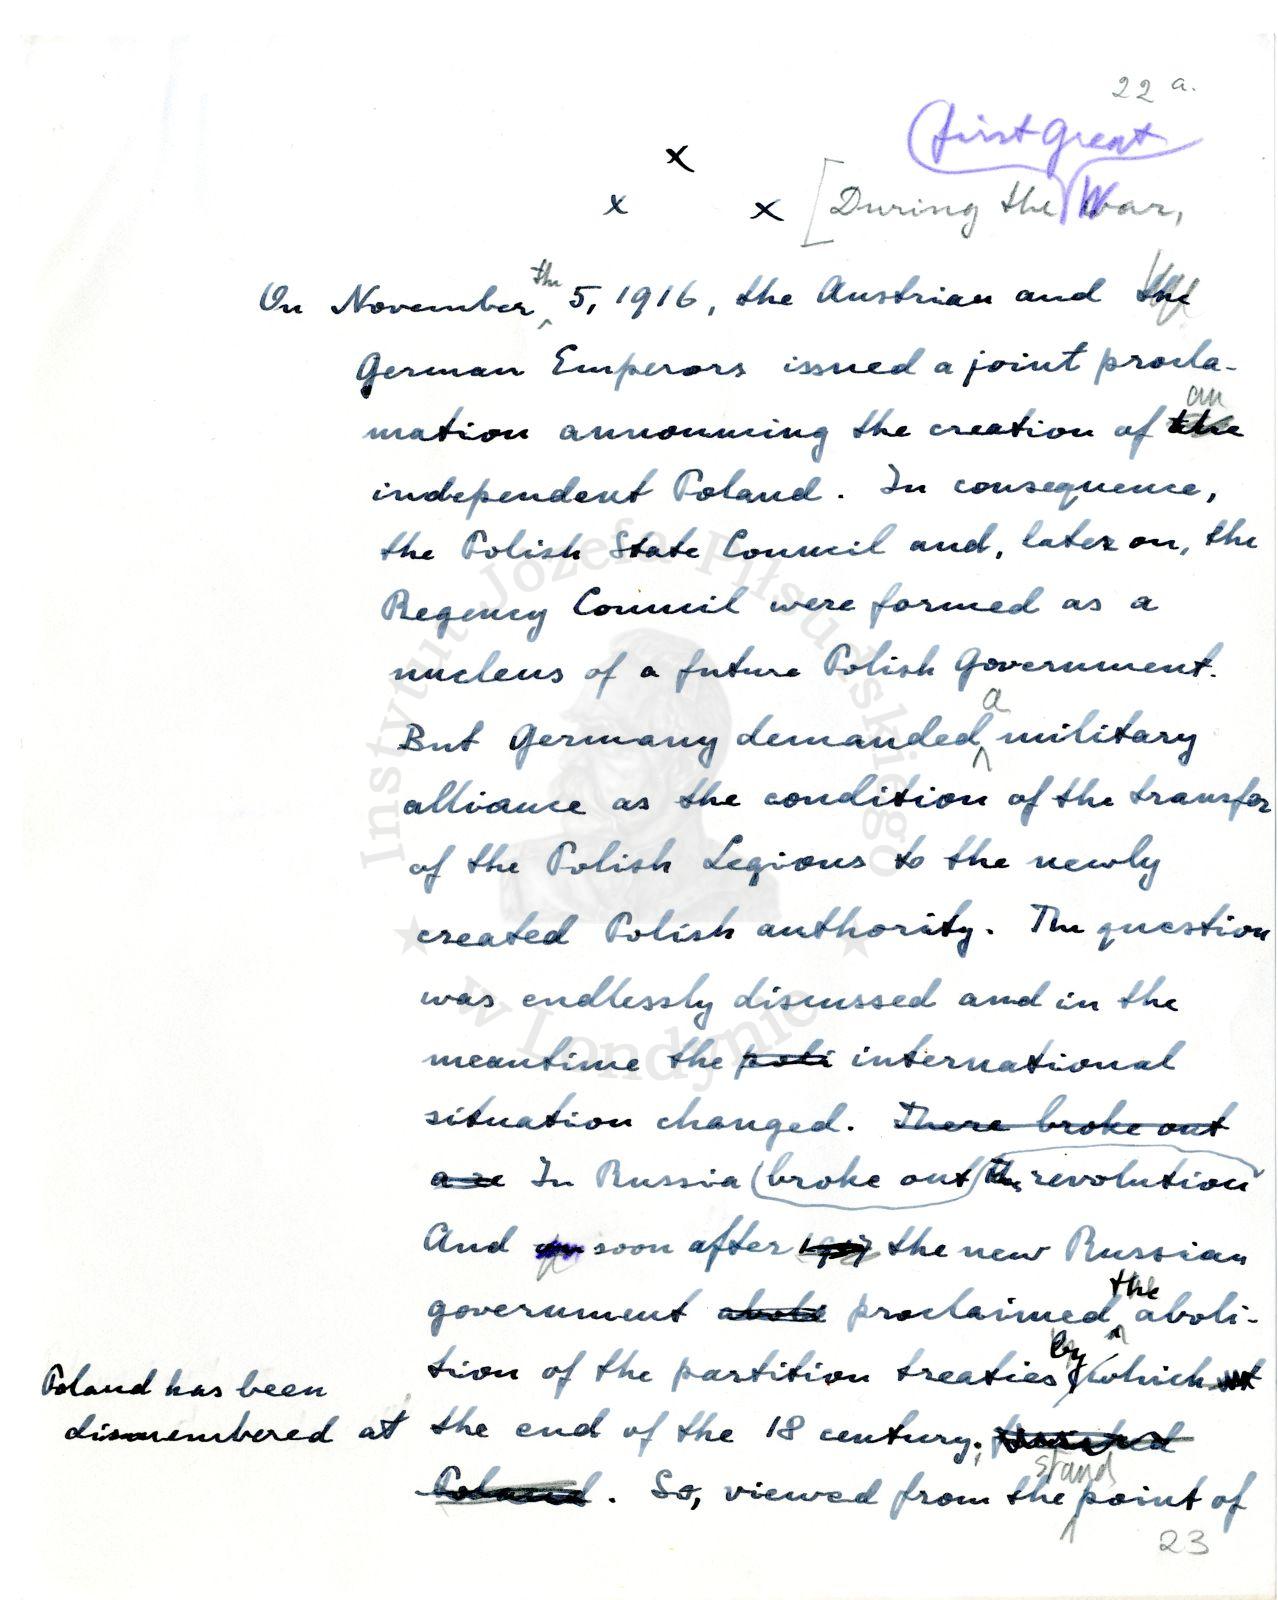 22 a.
first great
x
x x [During the War,
On November the 5, 1916, the Austrian and the
German Emperors issued a joint procla-
an
mation announcing the creation of the
independent Poland. In consequence,
the Polish State Council and, later on, the
Regency Council were formed as a
nucleus of a future Polish Government.
a
But Germany demanded military
alliance as the condition of the transfer
of the Polish Legions to the newly
created Polish authority. The question
was endlessly discussed and in the
meantime the poli international
situation changed. There broke out
a re In Russia (broke out) the revolution
And soon after 1917 the new Russian
the
government aboli proclaimed aboli-
by
tion of the partition treaties which
Poland has been
dismembered at the end of the 18 century;
stand
Poland. So, viewed from the point of
23
Instytut Józefa Piłsudskiego
w Londynie